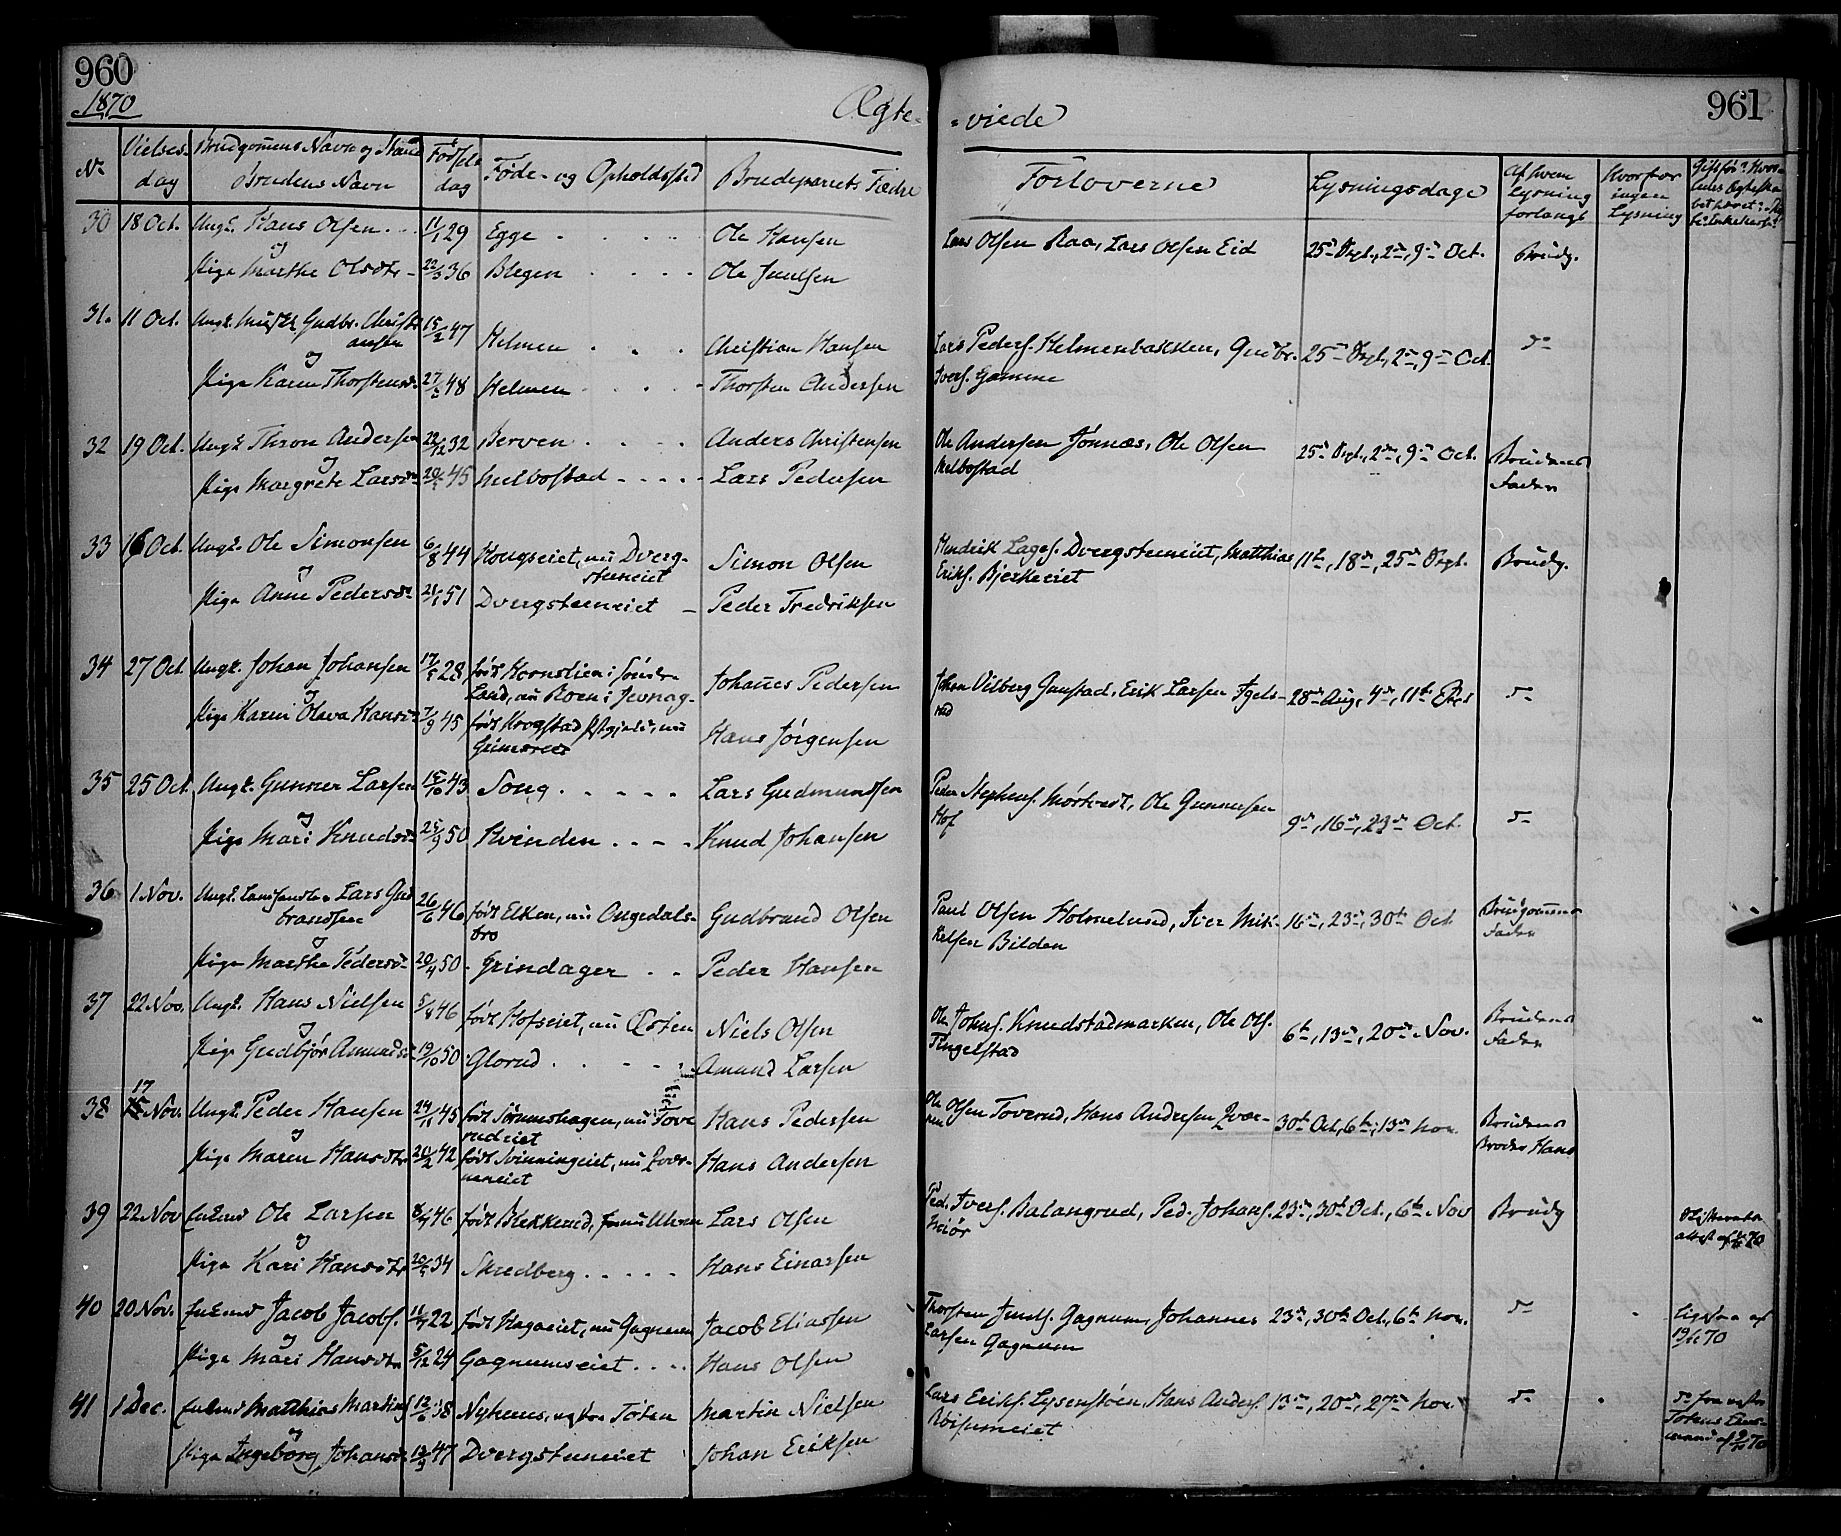 960
1870
Ægte-
N.
Vielses-
dag
Brudgomens Navn og Stand
Brudens Navn
Fødsels
dag
Føde- og Opholdssted
Brudeparrets Fædre
30 18 Oct. Ungk. Hans Olsen 11/1 29 Egge Ole Hansen
og
Pige Marthe Olsdtr 22/3 36 Blegen Ole Juulsen
31. 11 Oct. Ungk. Gudbr. Christi
ansen 15/2 47 Helmen Christian Hansen
og
Pige Karen Thorstensd. 48 Helmen Thorsten Andersen
32 19 Oct. Ungk Thron Andersen 22/12 32 Berven Anders Christensen
og
Pige Margrete Larsd. 45 Helbostad Lars Pedersen
33 16 Oct. Ungk. Ole Simonsen 6/8 44 Kongseiet, nu Dverg-
steneiet Simon Olsen
og
Pige Anne Pedersd. 21/1 51 Dvergsteneiet Peder Fredriksen
34 27 Oct. Ungk. Johan Johansen 28 født Kornstien i Søndre
Land, nu Roen i Jevnag- Johanes Pedersen
og
Pige Karen Olava Hansd. 7/9 45 født Krogstad Pstgjeld, nu
Grimsrud Hans Jørgensen
35 25 Oct. Ungk. Gunner Larsen 15/10 43 Song Lars Gudmundsen
og
Pige Mari Knudsd. 25/9 50 Kvinden Knud Johansen
36 1 Nov. Ungk. Landhandler Lars Gud
brandsen 26/6 46 født Elken, nu Angedals-
bro Gudbrand Olsen
og
Pige Marthe Pedersd. 20/4 50 Grindager Peder Hansen
37 22 Nov. Ungk. Hans Nielsen 5/8 46 født Hofseiet, nu Østen Niels Olsen
og
Pige Gudbjør Amundsd. 19/10 50 Glorud Amund Larsen
17
38 Nov. Ungk. Peder Hansen 24/11 45 født Sørumshagen, nu Tove
rudeiet Hans Pedersen
og
Pige Maren Hansdtr 20/2 42 født Svinningeiet, nu Kvær-
neneiet Hans Andersen
39 22 Nov Enkemd Ole Larsen 46 født Blekkerud, nu Ulven Lars Olsen
og
Pige Kari Hansdtr 34 Skredberg Hans Einarsen
40 20 Nov. Enkemd Jacob Jacobs. 22 født Hagaeiet, nu Gagnum Jacob Eliassen
og
Pige Mari Hansdtr 5/12 24 Gagnumseiet Hans Olsen
41 1 Dec. Enkemd Matthias Martins. 12/6 38 Nyhuus, vestre Toten Martin Nielsen
og
Pige Ingeborg Johansd. 13/9 47 Dvergsteneiet Johan Eriksen
961
-viede
Forloverne
Lysningsdage
Af hvem
Lysning
forlangt
Hvorfor
ingen
Lysning
Lars Olsen Raa, Lars Olsen Eid 25de Sept., 2den, 9de Oct. Brudg.
Lars Peders. Helmenbakken, Gudbr.
Ivers. Gamme 25de Sept, 2den, 9de Oct. do
Ole Andersen Jønnæs, Ole Olsen
Helbostad 25de Sept., 2den, 9de Oct. Brudens
Fader
Hendrik Lages. Dvergsteneiet, Matthias
Eriks. Bjerkeeiet 11te, 18de, 25de Sept. Brudg.
Johan Vilberg Gunstad, Erik Larsen Egels-
rud 28de Aug, 4de, 11te Sept do
Peder Stephens. Mørtvedt, Ole Gunnersen
Hof 9de, 16de, 23de Oct. do
Paul Olsen Holmelund, Iver Mik-
kelsen Bilden 16de, 23de, 30te Oct Brudgommens
Fader
Ole Johns. Knudstadmarken, Ole Ols.
Tingelstad 6te, 13de, 20de Nov. Brudens
Fader
Ole Olsen Toverud, Hans Andersen Kvær-
nen 30te Oct, 6te, 13de Nov. Brudens
Broder Hans
Ped. Ivers. Balangrud, Ped. Johans.
Kiør 23de, 30te Oct., 6te Nov Brudg
Thorsten Juuls. Gagnum, Johannes
Larsen Gagnum 23de, 30te Oct, 6te Nov. do
ligesaa af
19/11 70
Lars Eriks. Lysenstøen, Hans Anders.
Røisumeiet 13de, 20de, 27de Nov. do
do fra vestre
Totens Lens-
mand af 70